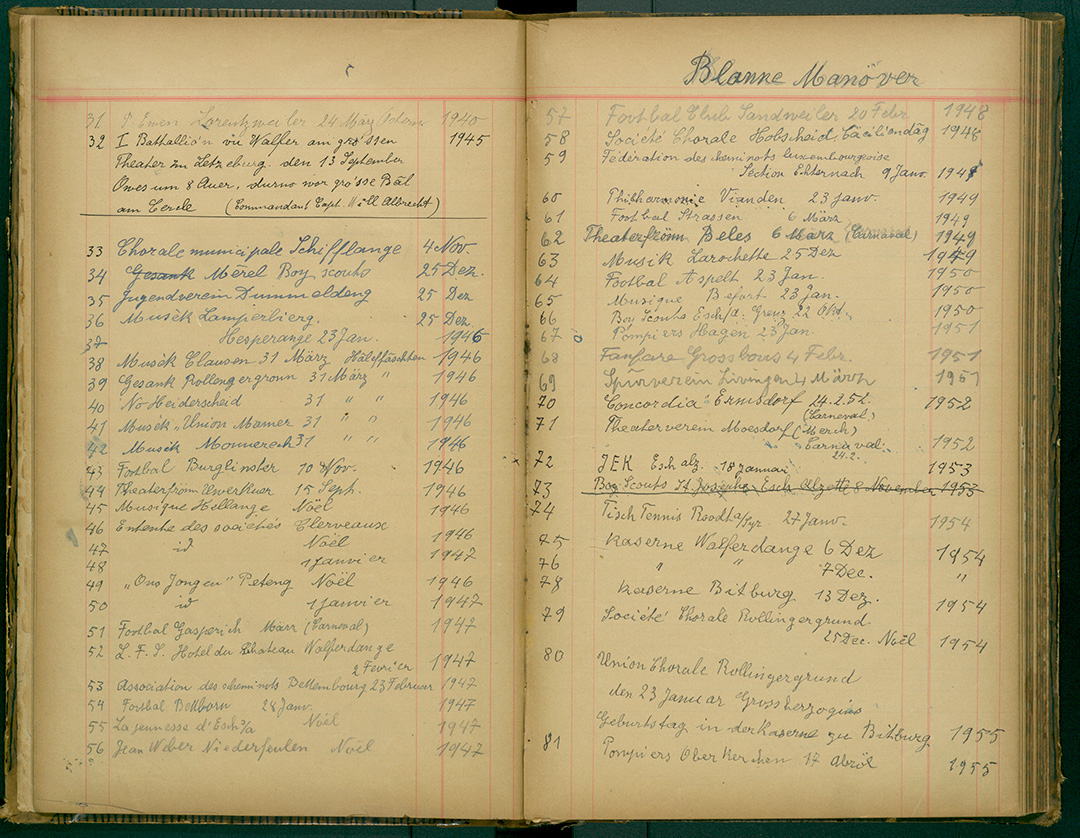 31 T. Emen Lorentzweiler 24 März Ostern 1940
32 I Battallión vu Walfer am gróssen 1945
Theater zu Letzeburg. den 13 September
Owes um 8 Auer, durno wor grósse Bal
am Cercle (Commandant Capt. Will Albrecht)
33 Chorale municipale Schifflange 4 Nov.
34 Gesank Mèrel Boy scouts 25 Dez.
35 Jugendverein Dummeldeng 25 Dez
36 Musèk Lamperbierg. 25 Dez
37 Hesperange 23 Jan. 1946
38 Musèk Clausen 31 März Háleffaschten 1946
39 Gesank Rollengergronn 31 März " 1946
40 No Heiderscheid 31 " " 1946
41 Musèk „Union Mamer 31 " " 1946
42 Musèk Monnerech 31 " " 1946
43 Footbal Burglinster 10 Nov. 1946
44 Theaterfrönn Uewerkuer 15 Sept. 1946
45 Musique Hellange Noël 1946
46 Entente des sociétés Clerveaux
47 id Noël 1946
48 1 janvier 1947
49 „Ons Jongen" Peteng Noël 1946
50 id 1 janvier 1947
51 Football Gasperich März (Carneval) 1947
52 L. F. S. Hotel du Chateau Walferdange
2 Fevrier 1947
53 Association des cheminots Bettembourg 23 Februar 1947
54 Footbal Bettborn 28 Janv. 1947
55 La jeunesse d'Esch/a Noël 1947
56 Jean Weber Niederfeulen Noël 1947
Blanne Manöver
57 Footbal Club Sandweiler 20 Febr 1948
58 Société Chorale Hobscheid. Cäciliendag 1948
59 Fédération des cheminots luxembourgeoise
Section Echternach 9 Janv. 1949
60 Philharmonie Vianden 23 janv. 1949
61 Footbal Strassen 6 März 1949
62 Theaterfrönn Beles 6 März (Carnaval) 1949
63 Musik Larochette 25 Dez 1949
64 Footbal Aspelt 23 Jan. 1950
65 Musique Befort 23 Jan. 1950
66 Boy Scouts Esch/a. Grenz 22 Okt. 1950
67 Pompiers Hagen 23 Jan. 1951
68 Fanfare Grossbous 4 Febr. 1951
69 Spurverein Livingen 4 März 1951
70 Concordia Ermsdorf 24.2.52 1952
(Carneval)
71 Theaterverein Moesdorf (Merch)
Carnaval. 1952
24.2.
72 JEK Esch alz. 18 Januar 1953
73 Boy Scouts St Josephs Esch Alzette 8 November 1953
74 Tisch Tennis Roodt a/Syr. 27 Janv. 1954
75 Kaserne Walferdange 6 Dez 1954
76 " " 7 Dec. "
78 Kaserne Bitburg 13 Dez. 1954
79 Société Chorale Rollingergrund
25 Dec. Noël 1954
80 Union Chorale Rollingergrund
den 23 Januar Grossherzogins
Geburtstag in der Kaserne zu Bitburg 1955
81 Pompiers Oberkerchen 17 Abröl 1955